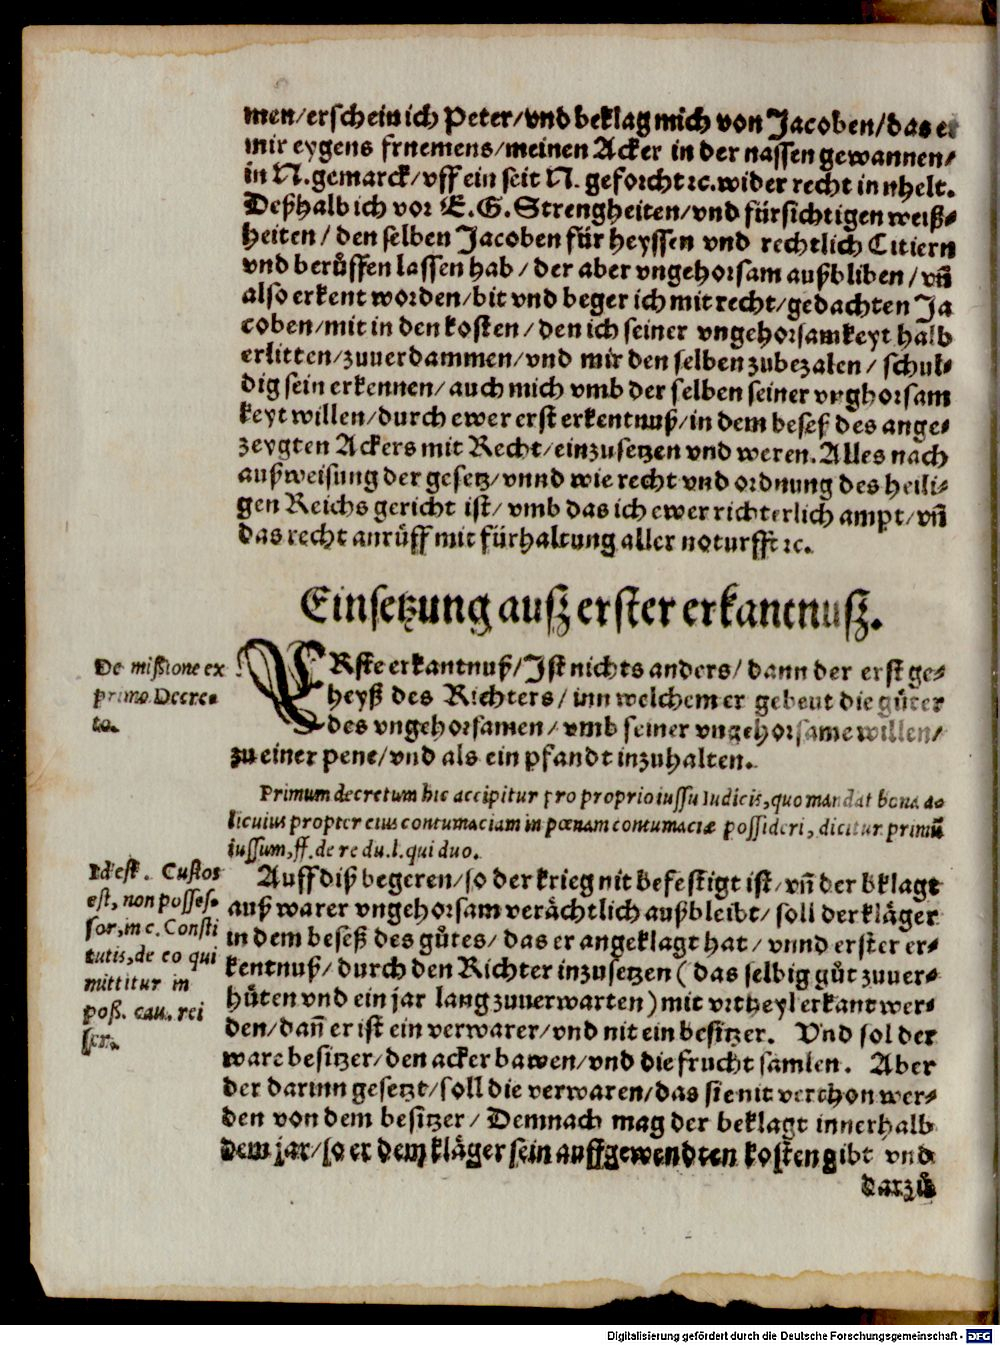 men/erschein ich Peter/vnd beklag mich von Jacoben/das er
mir eygens frnemens/meinen Acker in der nassen gewannen/
in N. gemarck/vff ein seit N. geforcht ⁊c. wider recht innhelt.
Deßhalb ich vor E. G. Strengheiten/vnd fürsichtigen weiß⸗
heiten/den selben Jacoben für heyssen vnd rechtlich Citiern
vnd berůffen lassen hab/der aber vngehorsam außbliben/vñ
also erkent worden/bit vnd beger ich mit recht/gedachten Ja
coben/mit in den kosten/den ich seiner vngehorsamkeyt halb
erlitten/zuuerdammen/vnd mir den selben zubezalen/schul⸗
dig sein erkennen/auch mich vmb der selben seiner vnghorsam
keyt willen/durch ewer erst erkentnuß/in dem beseß des ange⸗
zeygten Ackers mit Recht/einzusetzen vnd weren. Alles nach
außweisung der gesetz/vnnd wie recht vnd ordnung des heili⸗
gen Reichs gericht ist/vmb das ich ewer richterlich ampt/vñ
das recht anrůff mit fürhaltung aller noturfft ⁊c.
Einsetzung ausz erster erkantnusz.
De missione ex
primo Decre⸗
to.
ERste erkantnuß/Ist nichts anders/dann der erst ge⸗
heyß des Richters/inn welchem er gebeut die gůter
des vngehorsamen/vmb seiner vngehorsame willen/
zu einer pene/vnd als ein pfandt inzuhalten.
Primum decretum hic accipitur pro proprio iussu Iudicis, quo mandat bona ao
licuius propter eius contumaciam in pœnam contumaciæ possideri, dicitur primũ
iussum, ff. de re du. l. qui duo.
Id est. Custos
est, non posses⸗
sor, in c. Consti
tutis, de eo qui
mittitur in
poß. cau. rei
ser.
Auff diß begeren/so der krieg nit befestigt ist/vñ der bklagt
auß warer vngehorsam verächtlich außbleibt/soll der kläger
in dem beseß des gůtes/das er angeklagt hat/vnnd erster er⸗
kentnuß/durch den Richter inzusetzen (das selbig gůt zuuer⸗
hůten vnd ein jar lang zuuerwarten) mit vrtheyl erkant wer⸗
den/dañ er ist ein verwarer/vnd nit ein besitzer. Vnd sol der
ware besitzer/den acker bawen/vnd die frucht samlen. Aber
der darinn gesetzt/soll die verwaren/das sie nit verthon wer⸗
den von dem besitzer/Demnach mag der beklagt innerhalb
dem jar/so er dem kläger sein auffgewendten kosten gibt vnd
darzů
Digitalisierung gefördert durch die Deutsche Forschungsgemeinschaft - DFG